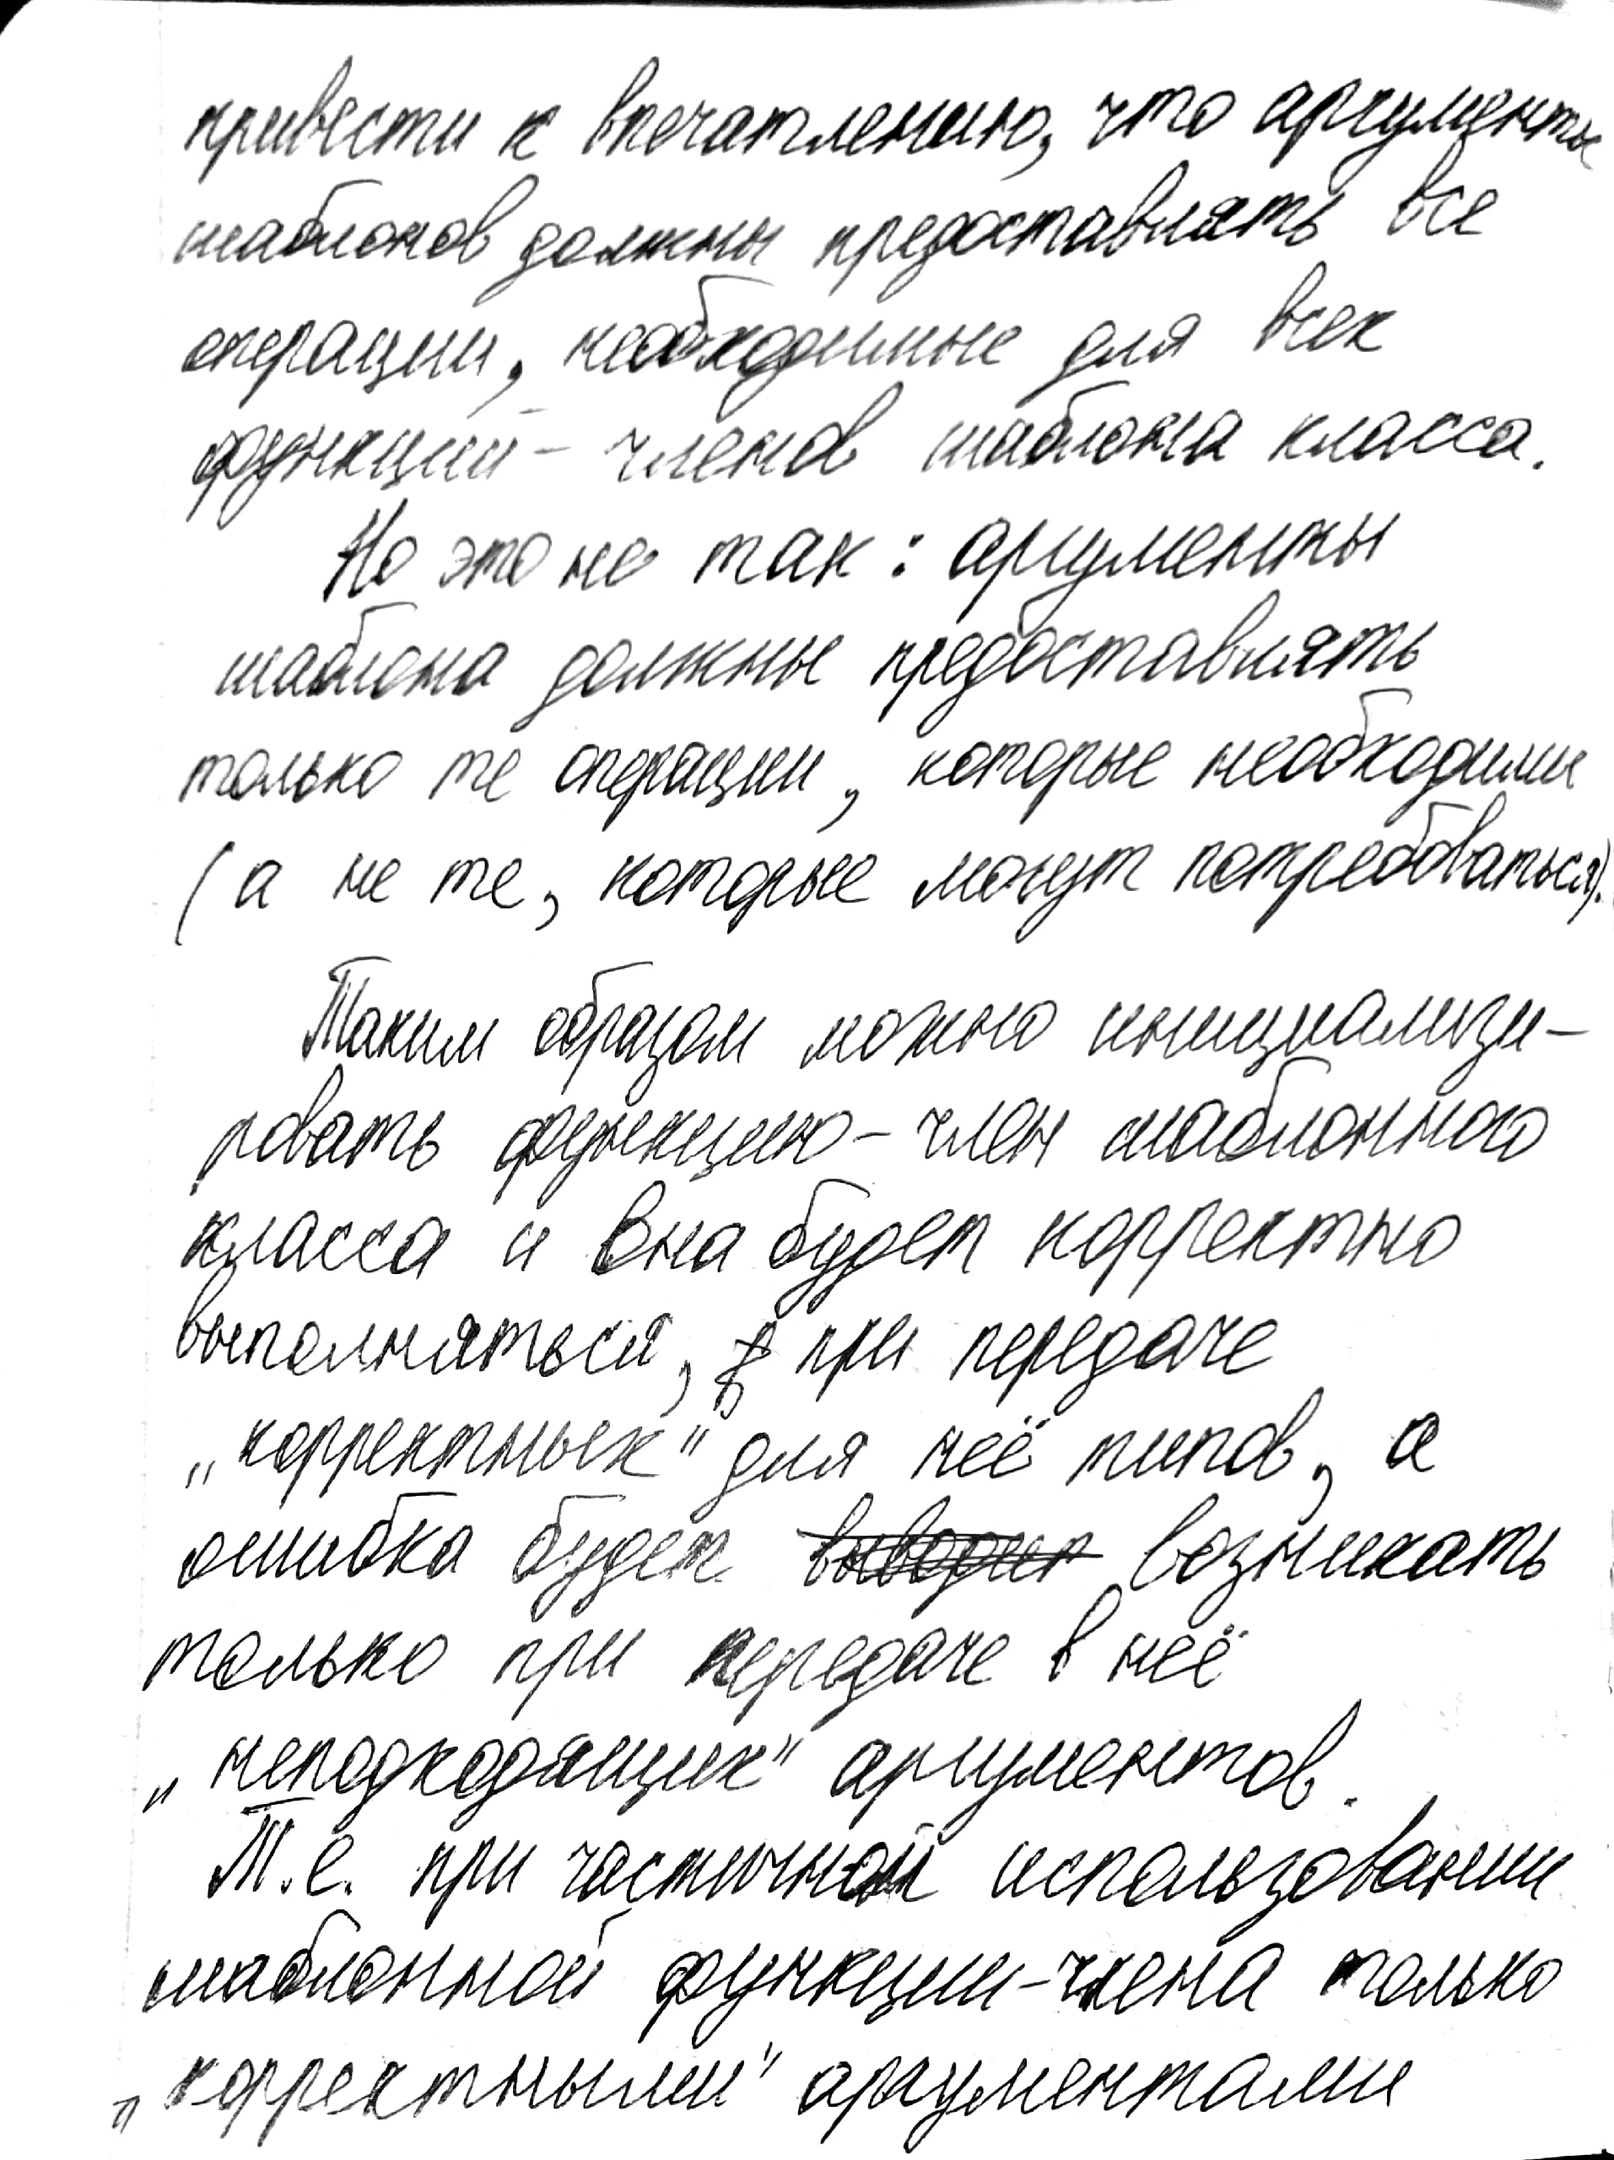 привести к впечатлению, что аргументы
шаблонов должны предоставлять все
операции, необходимые для всех
функций-членов шаблона класса.
Но это не так: аргументы
шаблона должны предоставлять
только те операции, которые необходимы
(а не те, которые могут потребоваться).
Таким образом можно инициализи-
ровать функцию-член шаблонного
класса и она будет корректно
выполняться, при передаче
„корректных" для неё типов, а
ошибка будет выводит возникать
только при передаче в неё
„неподходящих" аргументов.
Т.е. при частичном использовании
шаблонной функции-члена только
„корректными" аргументами